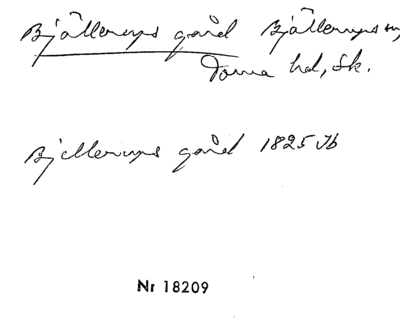 Bjällerups gård Bjällerups sn,
Torna hd, Sk.
Bjellerups gård 1825 Jb
Nr 18209